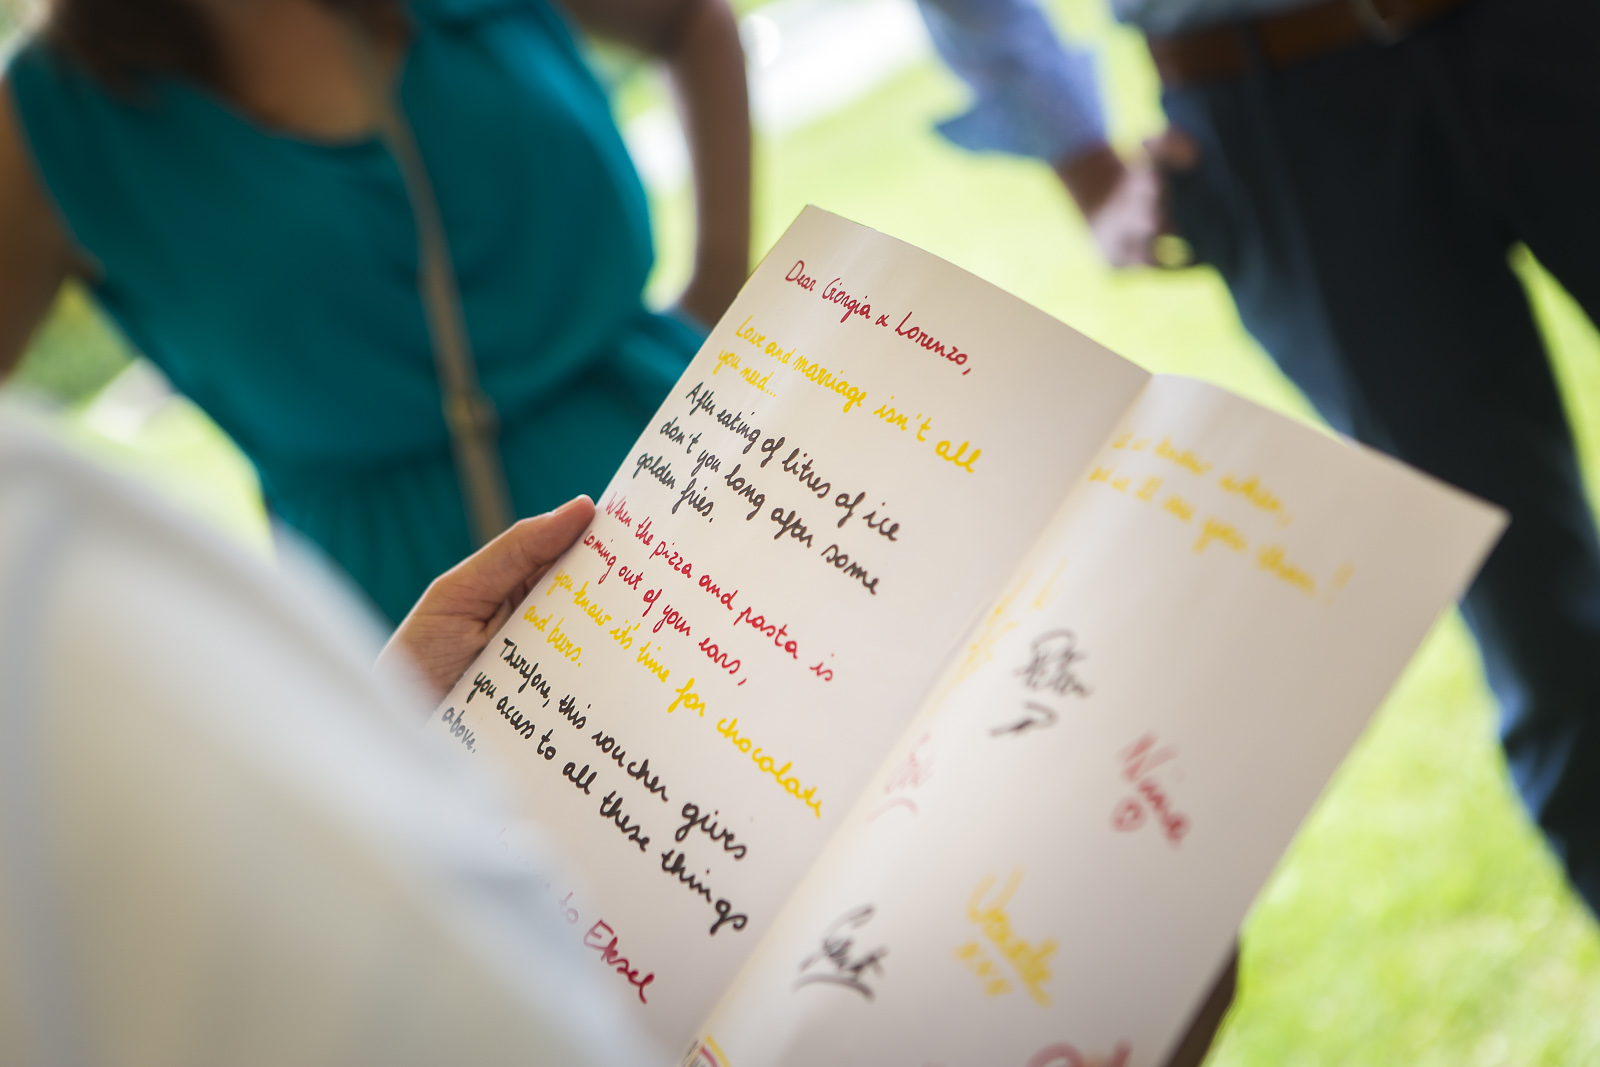 Dear Giorgia & Lorenzo,
Love and marriage isn't all
you need...
After eating of litres of ice
don't you long after some
golden fries.
When the pizza and pasta is
coming out of your ears,
you know it's time for chocolate
and beers.
Therefore, this voucher gives
you access to all these things
above.
to Eksel
know when,
you then!
Nina